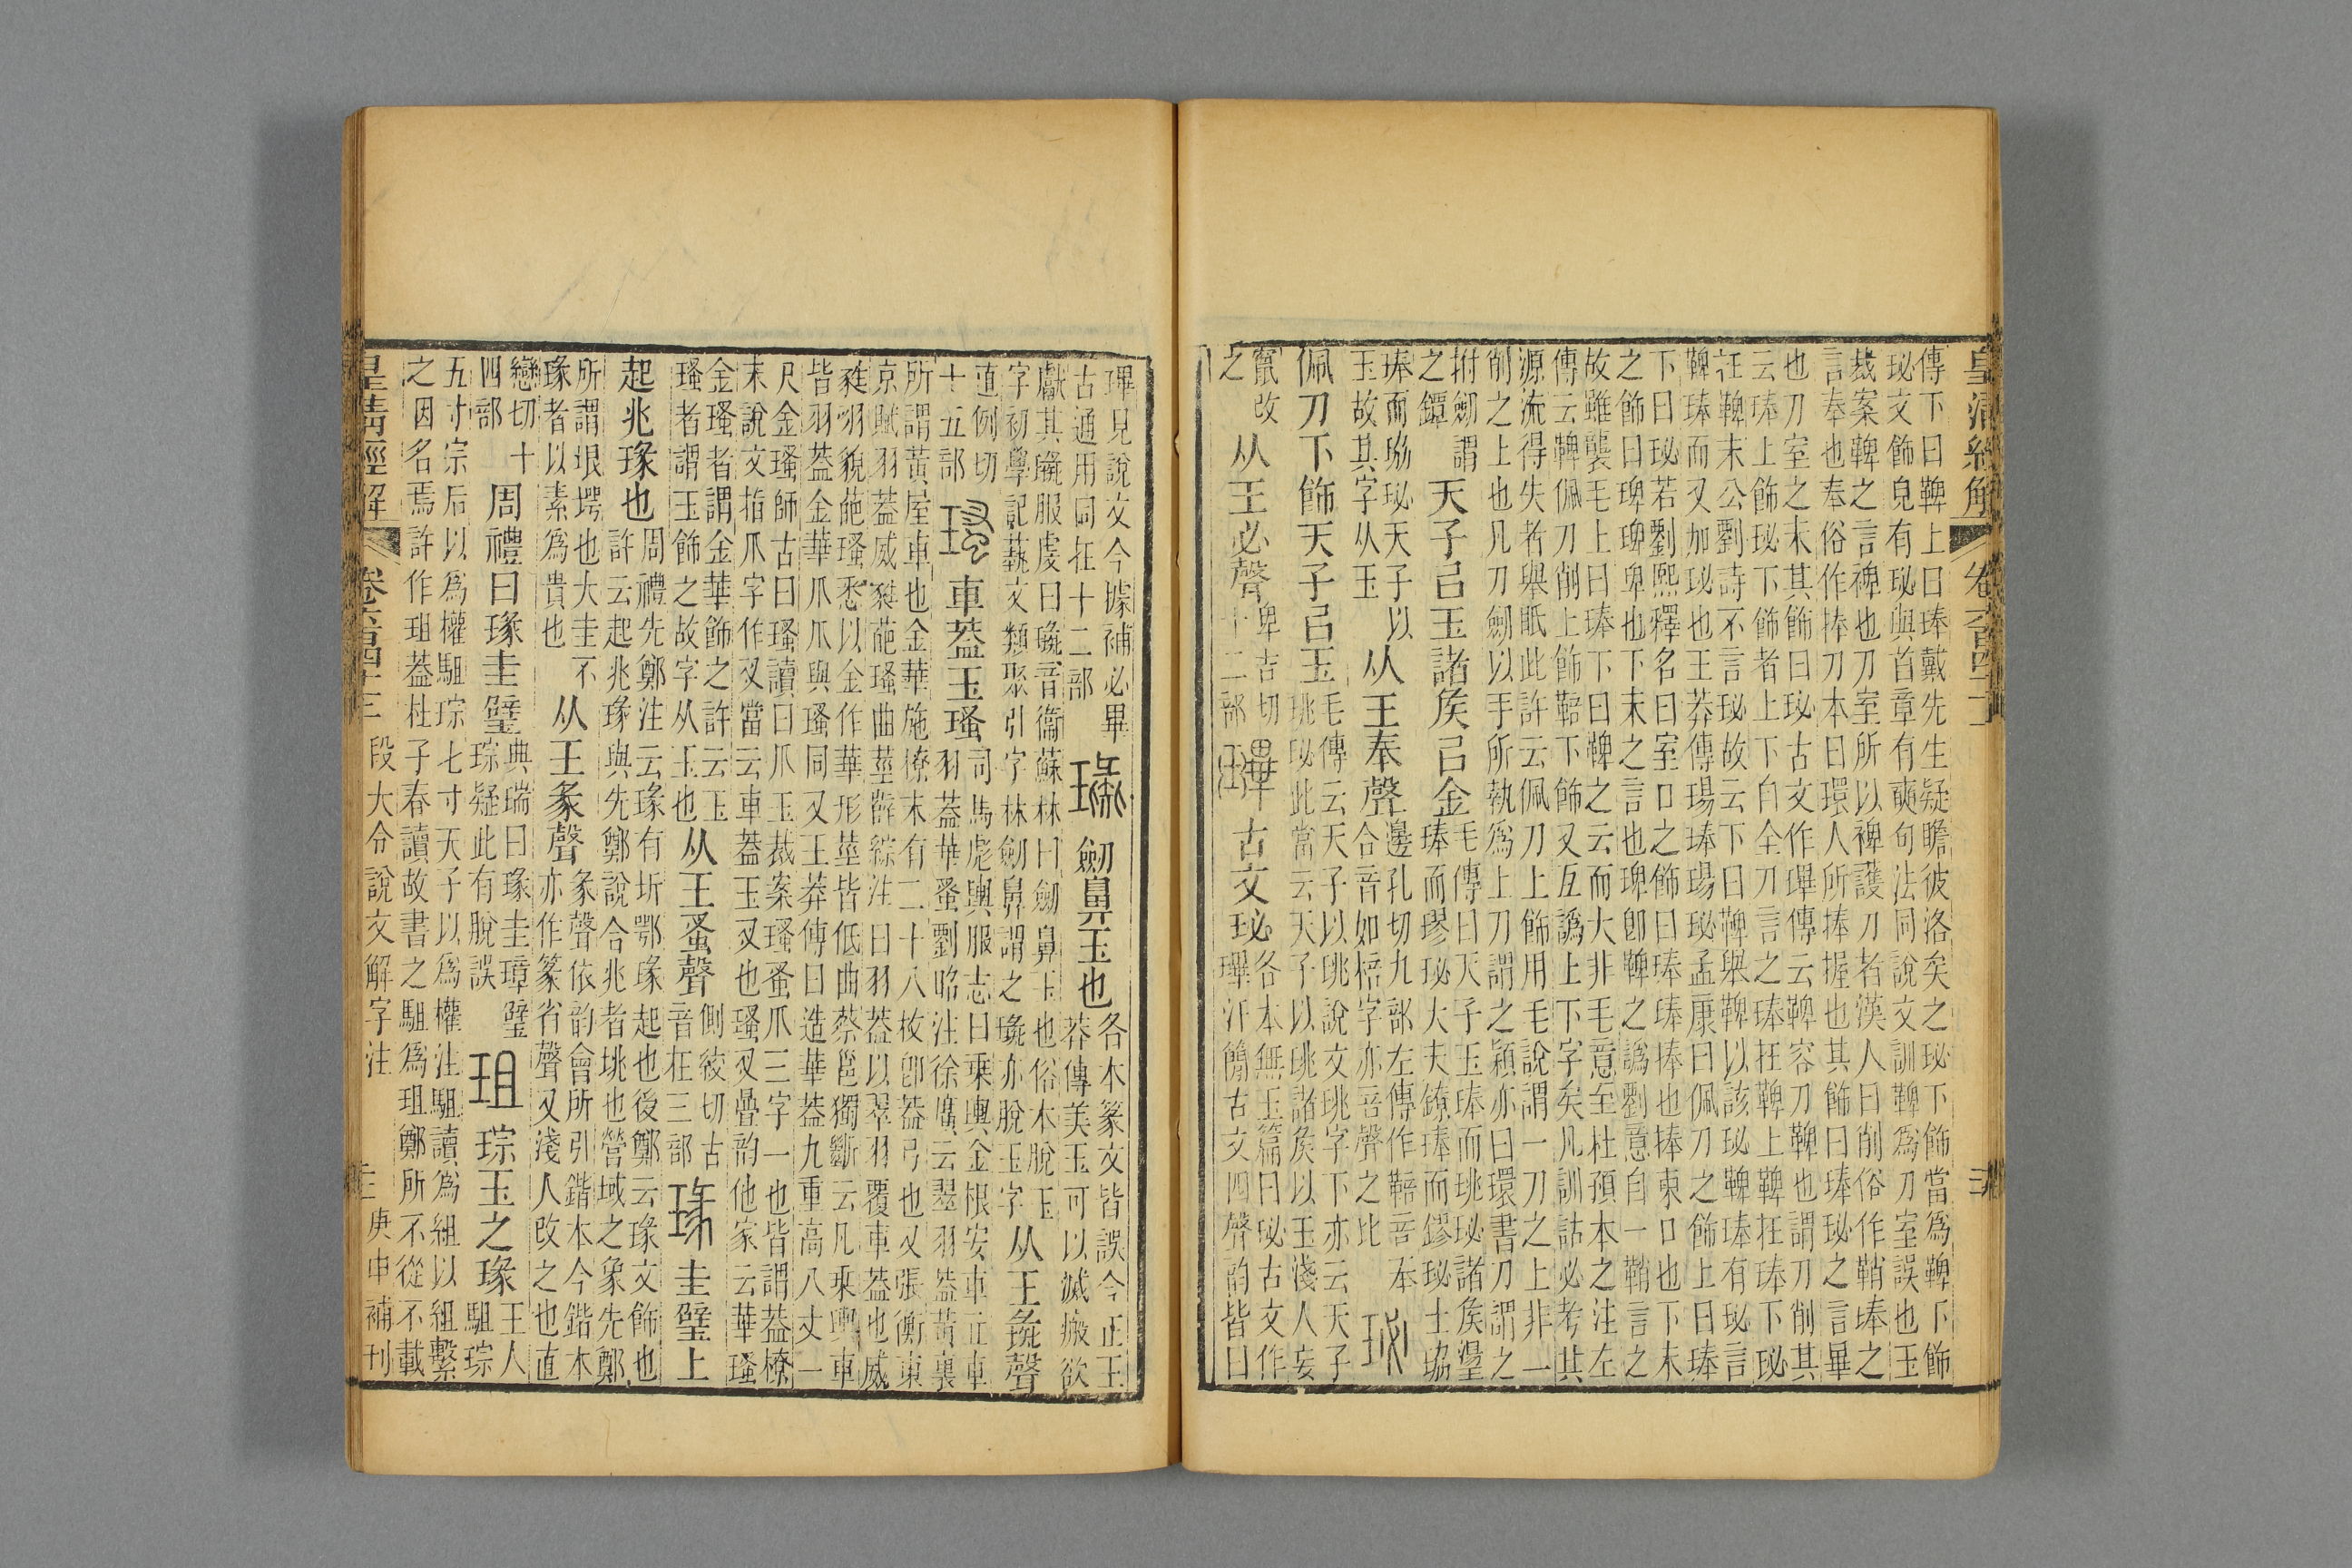 傳下曰鞞上曰琫戴先生疑瞻彼洛矣之珌下飾當爲鞞下飾
珌文飾皃有珌與首章有奭句法同說文訓鞞爲刀室誤也玉
裁案鞞之言裨也刀室所以裨護刀者漢人曰削俗作鞘琫之
言奉也奉俗作捧刀本曰環人所捧握也其飾曰琫珌之言畢
也刀室之末其飾曰珌古文作琕傳云鞞容刀鞞也謂刀削其
云琫上飾珌下飾者上下自全刀言之琫在鞞上鞞在琫下珌
在鞞末公劉詩不言珌故云下曰鞞舉鞞以該珌鞞琫有珌言
鞞琫而又加珌也王莽傳瑒琫瑒珌孟康曰佩刀之飾上曰琫
下曰珌若劉熙釋名曰室口之飾曰琫琫捧也捧束口也下末
之飾曰琕琕卑也下末之言也琕卽鞞之譌劉意自一鞘言之
故雖襲毛上曰琫下曰鞞之云而大非毛意至杜預本之注左
傳云鞞佩刀削上飾鞛下飾又互譌上下字矣凡訓詁必考其
源流得失者舉眡此許云佩刀上飾用毛說謂一刀之上非一
削之上也凡刀劒以手所執爲上刀謂之穎亦曰環書刀謂之
拊劒謂之鐔 天子㠯玉諸矦㠯金 毛傳曰天子玉琫而珧珌諸矦璗琫而璆珌大夫鐐琫而鏐珌士珕
琫而珕珌天子以玉故其字从玉 从王奉聲 邊孔切九部左傳作鞛音奉合音如棓字亦音聲之比 珌
佩刀下飾天子㠯玉 毛傳云天子以珧說文珧字下亦云天子珧珌此當云天子以珧諸矦以玉淺人妄
竄改之 从王必聲 卑吉切十二部 琕 古文珌 各本無玉篇曰珌古文作琕汗簡古文四聲韵皆曰
琕見說文今據補必畢古通用同在十二部 璏 劒鼻玉也 各本篆文皆誤今正王莽傳美玉可以滅瘢欲
獻其瑑服虔曰璏音衞蘇林曰劒鼻玉也俗本脫玉字初學記蓺文類聚引字林劒鼻謂之璏亦脫玉字 从王彘聲
直例切十五部 瑵 車葢玉瑵 司馬彪輿服志曰乘輿金根安車立車羽葢華蚤劉昭注徐廣云翠羽葢黃裏
所謂黃屋車也金華施橑末有二十八枚卽葢弓也又張衡東
京賦羽葢威蕤葩瑵曲莖薛綜注曰羽葢以翠羽覆車葢也威
蕤羽貌葩瑵悉以金作華形莖皆低曲蔡邕獨斷云凡乘輿車
皆羽葢金華爪爪與瑵同又王莽傳曰造華葢九重高八丈一
尺金瑵師古曰瑵讀曰爪玉裁案瑵蚤爪三字一也皆謂葢橑
末說文指爪字作叉當云車葢玉叉也瑵叉曡韵他家云華瑵
金瑵者謂金華飾之許云玉瑵者謂玉飾之故字从玉也 从王蚤聲 側絞切古音在三部 瑑 圭璧上
起兆瑑也 周禮先鄭注云瑑有圻鄂瑑起也後鄭云瑑文飾也許云起兆瑑與先鄭說合兆者垗也營域之象先鄭
所謂垠堮也大圭不瑑者以素爲貴也 从王彖聲 彖聲依韵會所引鍇本今鍇本亦作篆省聲又淺人改之也直
戀切十四部 周禮曰瑑圭璧 典瑞曰瑑圭璋璧琮疑此有脫誤 珇 琮玉之瑑 王人駔琮
五寸宗后以爲權駔琮七寸天子以爲權注駔讀爲組以組繫
之因名焉許作珇葢杜子春讀故書之駔爲珇鄭所不從不載
皇清經解 段大令說文解字注 庚申補刊